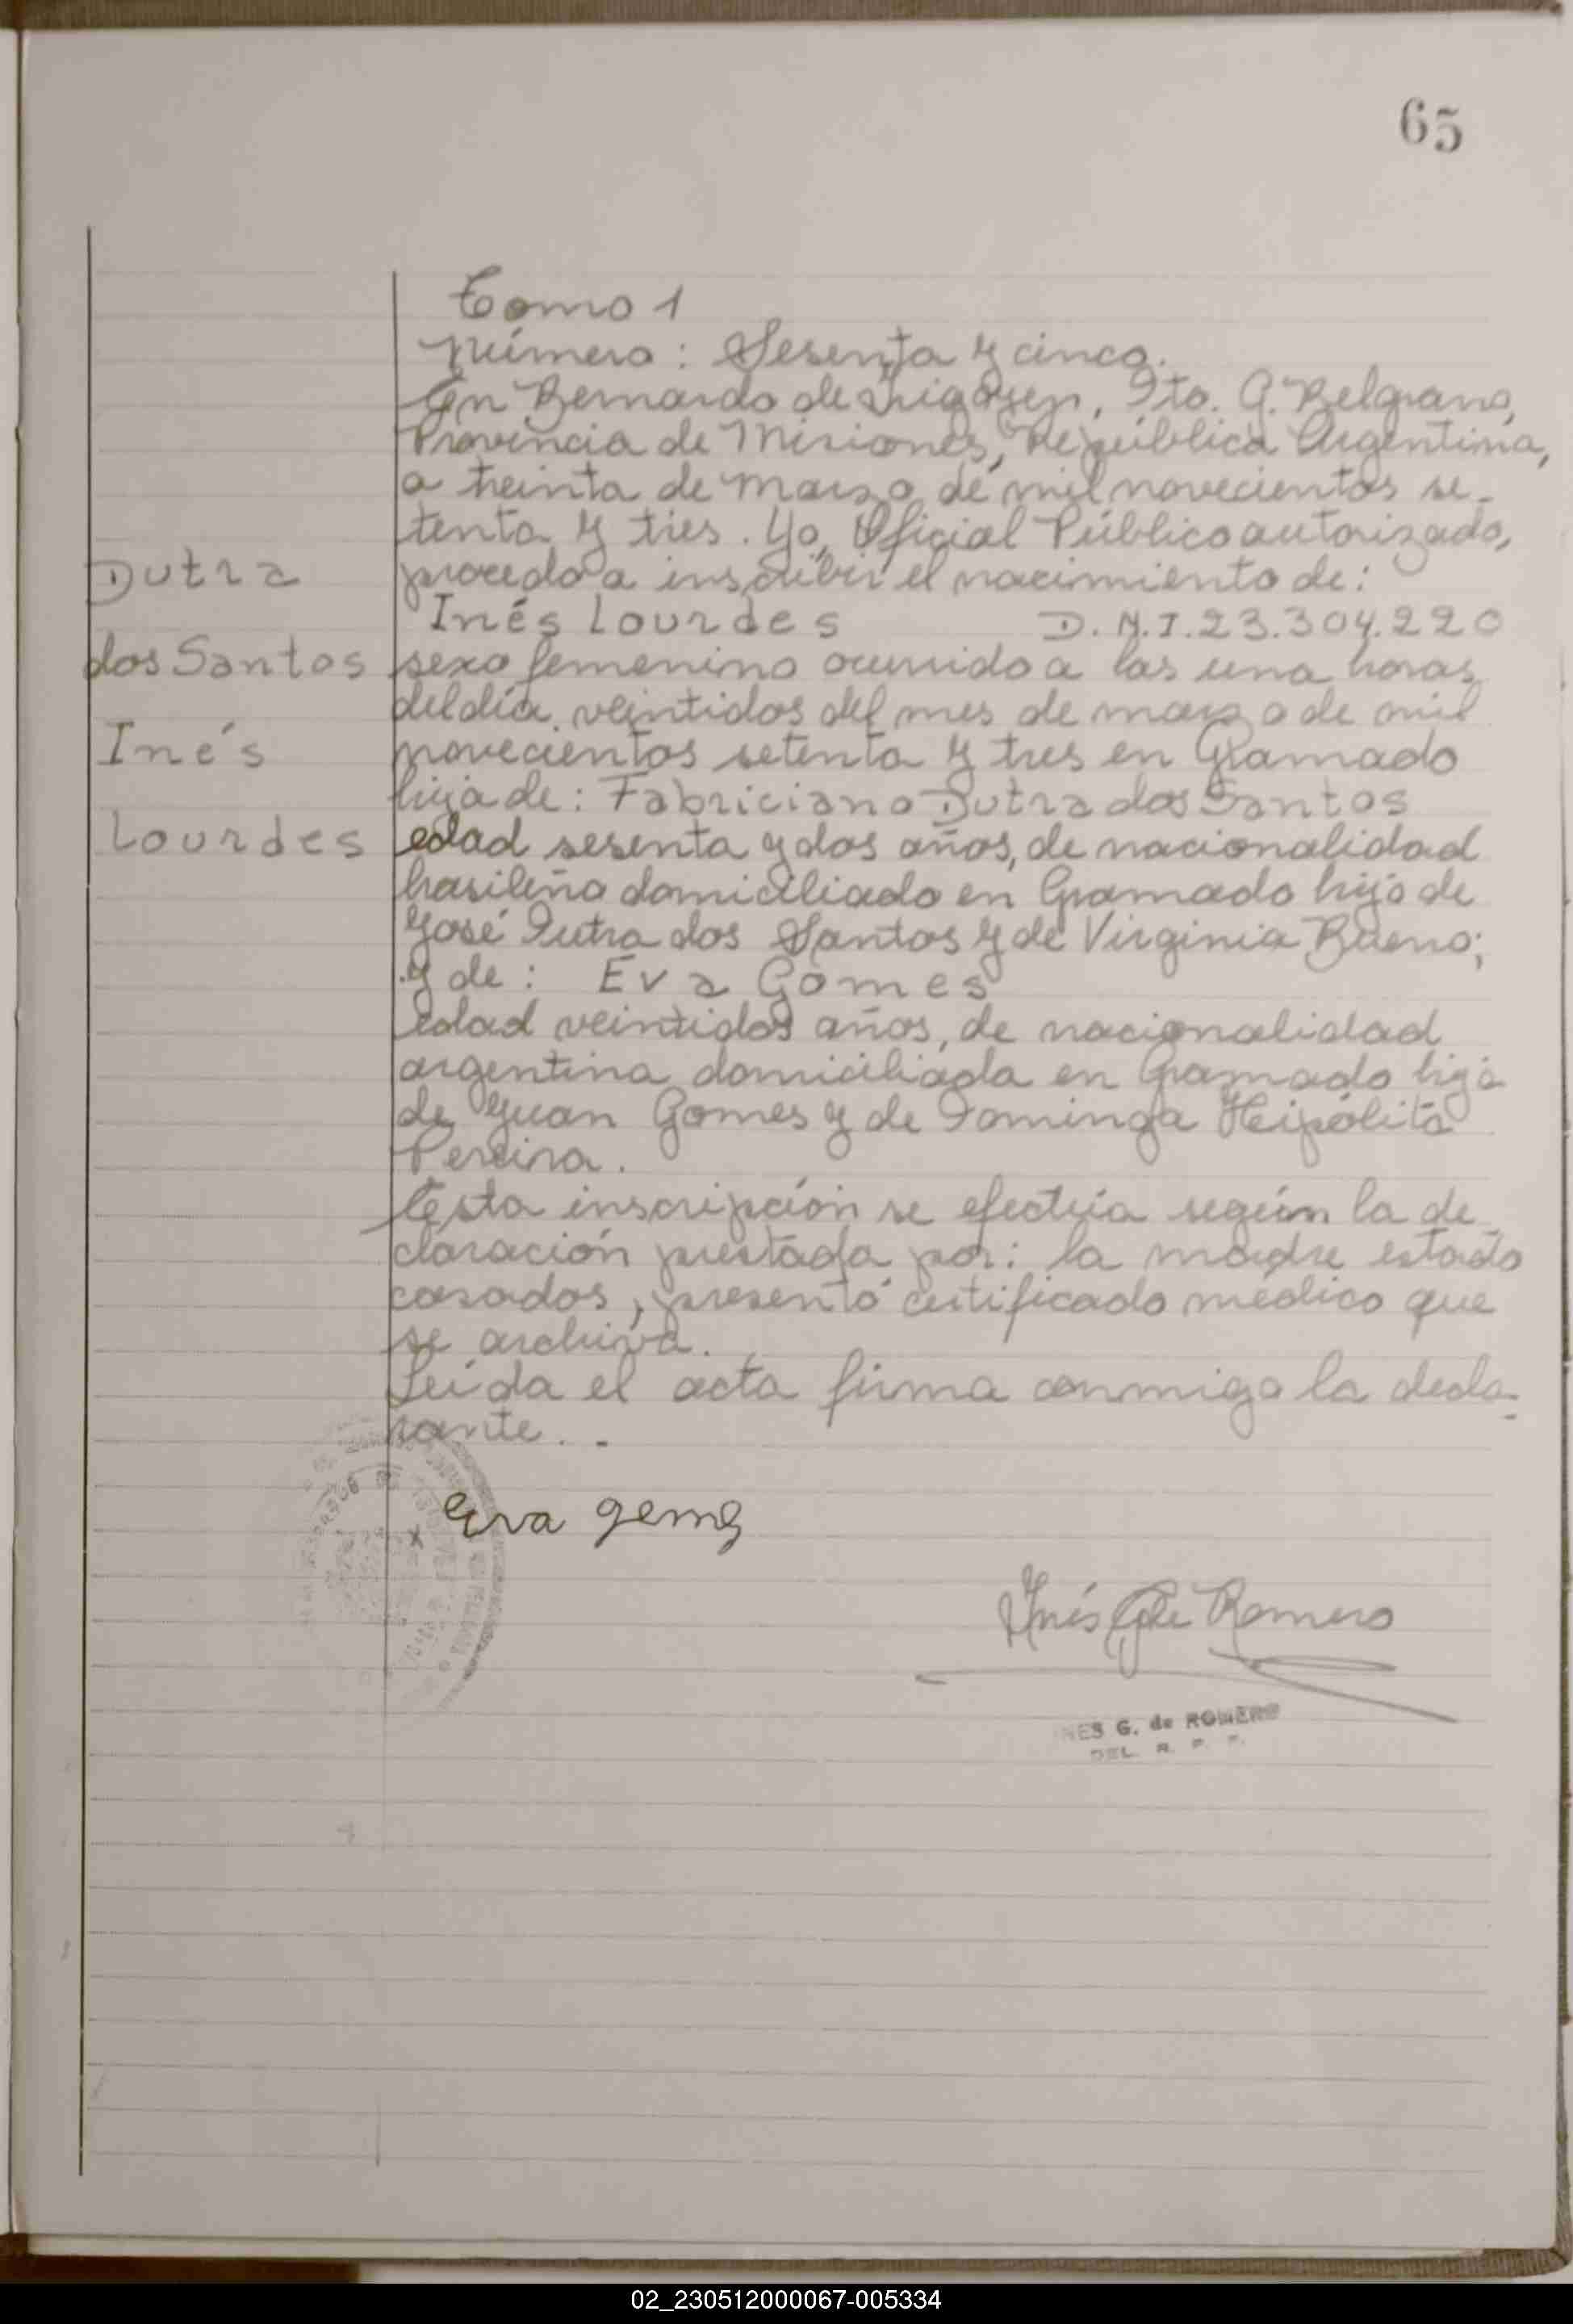 65
Tomo 1
Número: Sesenta y cinco.
En Bernardo de Irigoyen, Dto. G. Belgrano,
Provincia de Misiones, República Argentina,
a treinta de marzo de mil novecientos se-
tenta y tres. Yo, Oficial Público autorizado,
procedo a inscribir el nacimiento de:
Inés Lourdes D.N.I. 23.304.220
sexo femenino ocurrido a las una horas
del día veintidos del mes de marzo de mil
novecientos setenta y tres en Gramado
hija de: Fabriciano Dutra dos Santos
edad sesenta y dos años, de nacionalidad
brasileña domiciliado en Gramado hijo de
José Dutra dos Santos y de Virginia Bueno;
y de: Eva Gomes
edad veintidos años, de nacionalidad
argentina domiciliada en Gramado hija
de Juan Gomes y de Dominga Heipólita
Pereira.
Esta inscripción se efectúa según la de-
claración prestada por: la madre estado
casados, presentó certificado médico que
se archiva.
Leída el acta firma conmigo la decla-
rante. . -
Dutra
dos Santos
Inés
Lourdes
x Eva gemes
Inés G de Romero
INES G. de ROMERO
DEL. R. P. P.
02_230512000067-005334